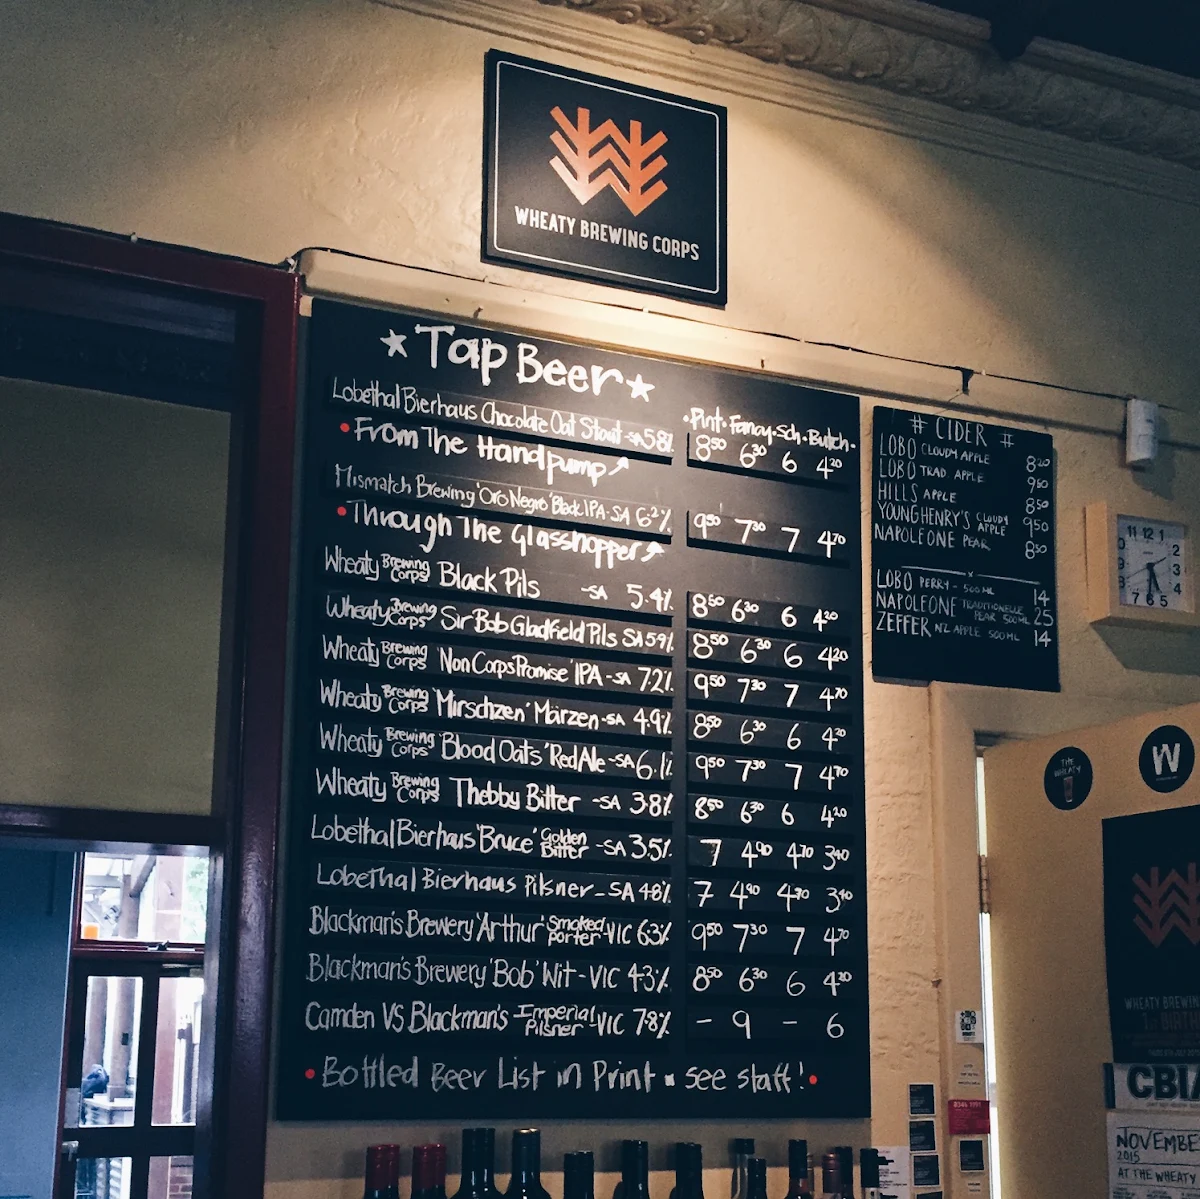 WHEATY BREWING CORPS
★ Tap Beer ★
• Pint • Fancy • Sch • Butch •
Lobethal Bierhaus Chocolate Oat Stout - SA 5.8% 8⁵⁰ 6³⁰ 6 4²⁰
• From The Handpump
Mismatch Brewing 'Oro Negro' Black IPA - SA 6.2% 9⁵⁰ 7³⁰ 7 4⁷⁰
• Through The Glasshopper
Wheaty Brewing Corps Black Pils - SA 5.4% 8⁵⁰ 6³⁰ 6 4²⁰
Wheaty Brewing Corps Sir Bob Gladfield Pils SA 5.9% 8⁵⁰ 6³⁰ 6 4²⁰
Wheaty Brewing Corps 'Non Corps Promise' IPA - SA 7.2% 9⁵⁰ 7³⁰ 7 4⁷⁰
Wheaty Brewing Corps 'Mirschzen' Märzen - SA 4.9% 8⁵⁰ 6³⁰ 6 4²⁰
Wheaty Brewing Corps 'Blood Oats' Red Ale - SA 6.1% 9⁵⁰ 7³⁰ 7 4⁷⁰
Wheaty Brewing Corps Thebby Bitter - SA 3.8% 8⁵⁰ 6³⁰ 6 4²⁰
Lobethal Bierhaus 'Bruce' Golden Bitter - SA 3.5% 7 4⁹⁰ 4⁷⁰ 3⁴⁰
Lobethal Bierhaus Pilsner - SA 4.8% 7 4⁹⁰ 4⁷⁰ 3⁴⁰
Blackman's Brewery 'Arthur' Smoked Porter - VIC 6.3% 9⁵⁰ 7³⁰ 7 4⁷⁰
Blackman's Brewery 'Bob' Wit - VIC 4.3% 8⁵⁰ 6³⁰ 6 4²⁰
Camden VS Blackman's Imperial Pilsner - VIC 7.8% - 9 - 6
• Bottled Beer List in Print • see staff! •
# CIDER #
LOBO CLOUDY APPLE 8²⁰
LOBO TRAD. APPLE 9⁵⁰
HILLS APPLE 8⁵⁰
YOUNG HENRY'S CLOUDY APPLE 9⁵⁰
NAPOLEONE PEAR 8⁵⁰
LOBO PERRY - 500ML 14
NAPOLEONE TRADITIONELLE PEAR 500ML 25
ZEFFER NZ APPLE 500ML 14
11 12 1
2
3
4
7 6 5
THE WHEATY
W
WHEATY BREWIN
1ST BIRT
CBIA
NOVEMBE
2015
AT THE WHEATY